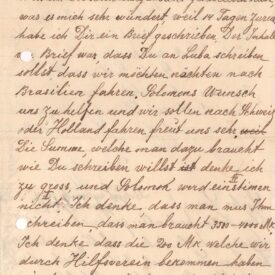 was es mich sehr wundert, weil 14 Tagen zurück
habe ich Dir ein Brief geschrieben. Der Inhalt
Brief war, dass Du an Luba schreiben
sollst dass wir möchten nach
Brasilien fahren. Solomons Wunsch
uns zu helfen und wir sollen nach
oder Holland fahren, freut uns sehr
Die Summe welche man dazu braucht
wie Du schreiben willst ist denke ich
zu gross, und Solomon wird einstimen
nicht. Ich denke dass man mus Ihm
schreiben, dass man braucht 3500-4000 Mk.
Ich denke dass die 200 Mk. welche wir
durch Hilfsverein bekommen haben